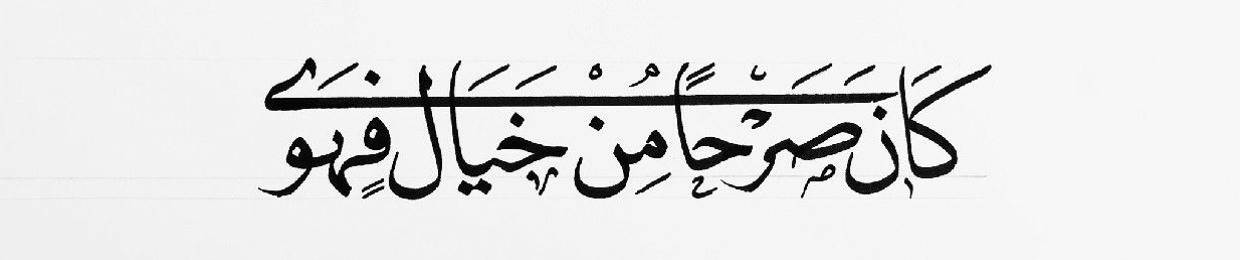 كَانَ صَرْحًا مِنْ خَيَالٍ فَهَوَى